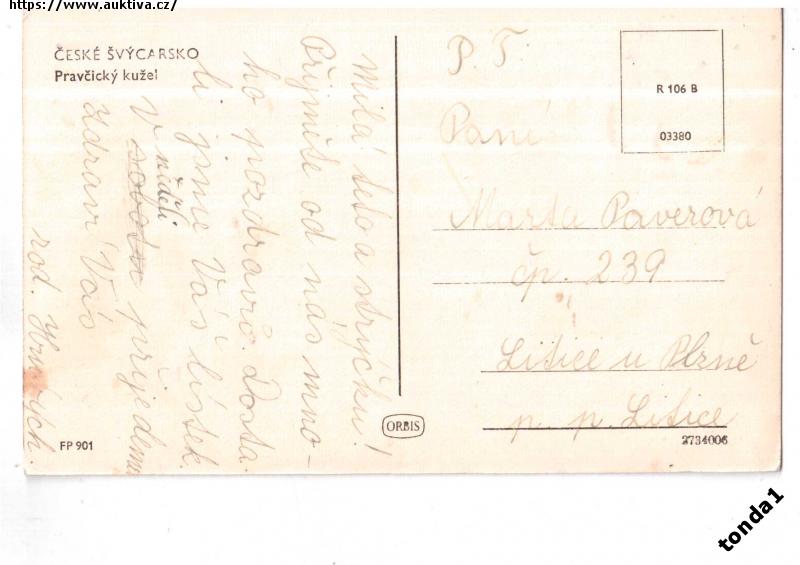 https://www.auktiva.cz/
ČESKÉ ŠVÝCARSKO
Pravčický kužel
Milá teto a strýčku!
Přijměte od nás mno-
ho pozdravů. Dosta
li jsme Váš lístek.
V sobotu přijedeme
neděli
zdraví Vás
rod.
P. T.
Paní
Marta Paverová
čp. 239
Litice u Plzně
p. p. Litice
R 106 B
03380
ORBIS
FP 901
2734006
tonda1